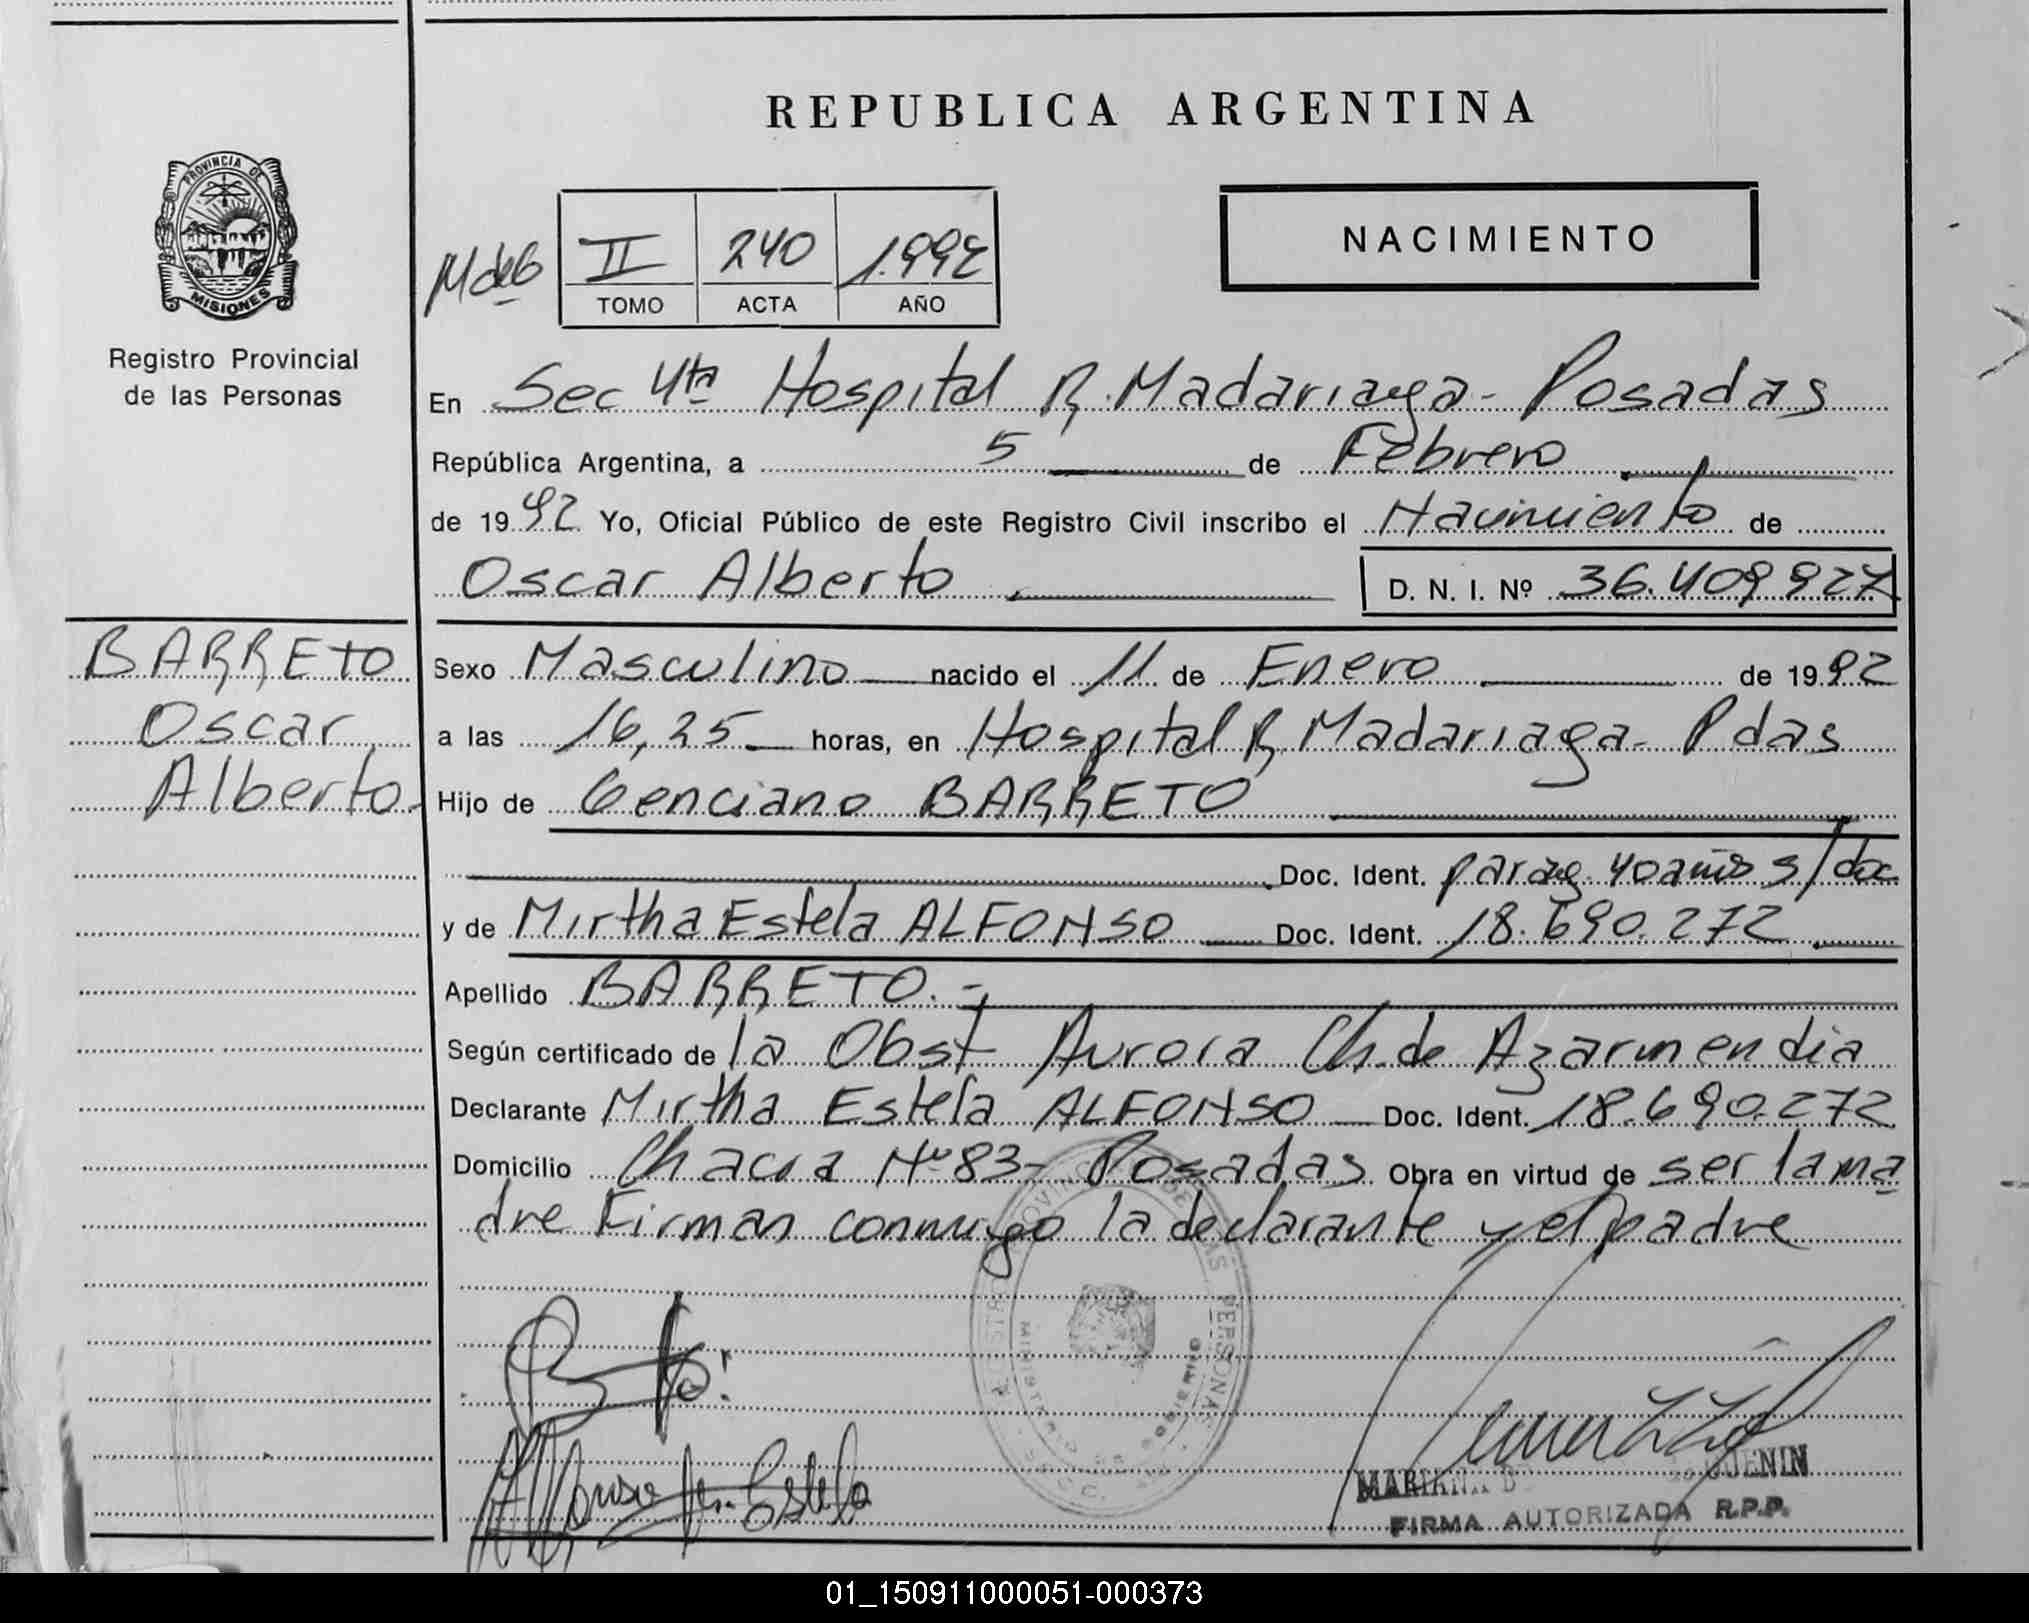 REPUBLICA ARGENTINA
PROVINCIA DE
MISIONES
Registro Provincial
de las Personas
NACIMIENTO
M de G II 240 1.992
TOMO ACTA AÑO
En Sec 4ta Hospital R. Madariaga - Posadas
República Argentina, a 5 de Febrero
de 1992 Yo, Oficial Público de este Registro Civil inscribo el Nacimiento de
Oscar Alberto D. N. I. Nº 36.409.927
BARRETO
Oscar
Alberto.
Sexo Masculino nacido el 11 de Enero de 1992
a las 16,25 horas, en Hospital R. Madariaga - Pdas
Hijo de Genciano BARRETO
Doc. Ident. parag. 40 años s/doc
y de Mirtha Estela ALFONSO Doc. Ident. 18.690.272
Apellido BARRETO.-
Según certificado de la Obst Aurora Ch. de Azarmendia
Declarante Mirtha Estela ALFONSO Doc. Ident. 18.690.272
Domicilio Chacra Nº 83 - Posadas Obra en virtud de ser la ma
dre Firman conmigo la declarante y el padre
MARIANA
FIRMA AUTORIZADA R.P.P.
01_150911000051-000373